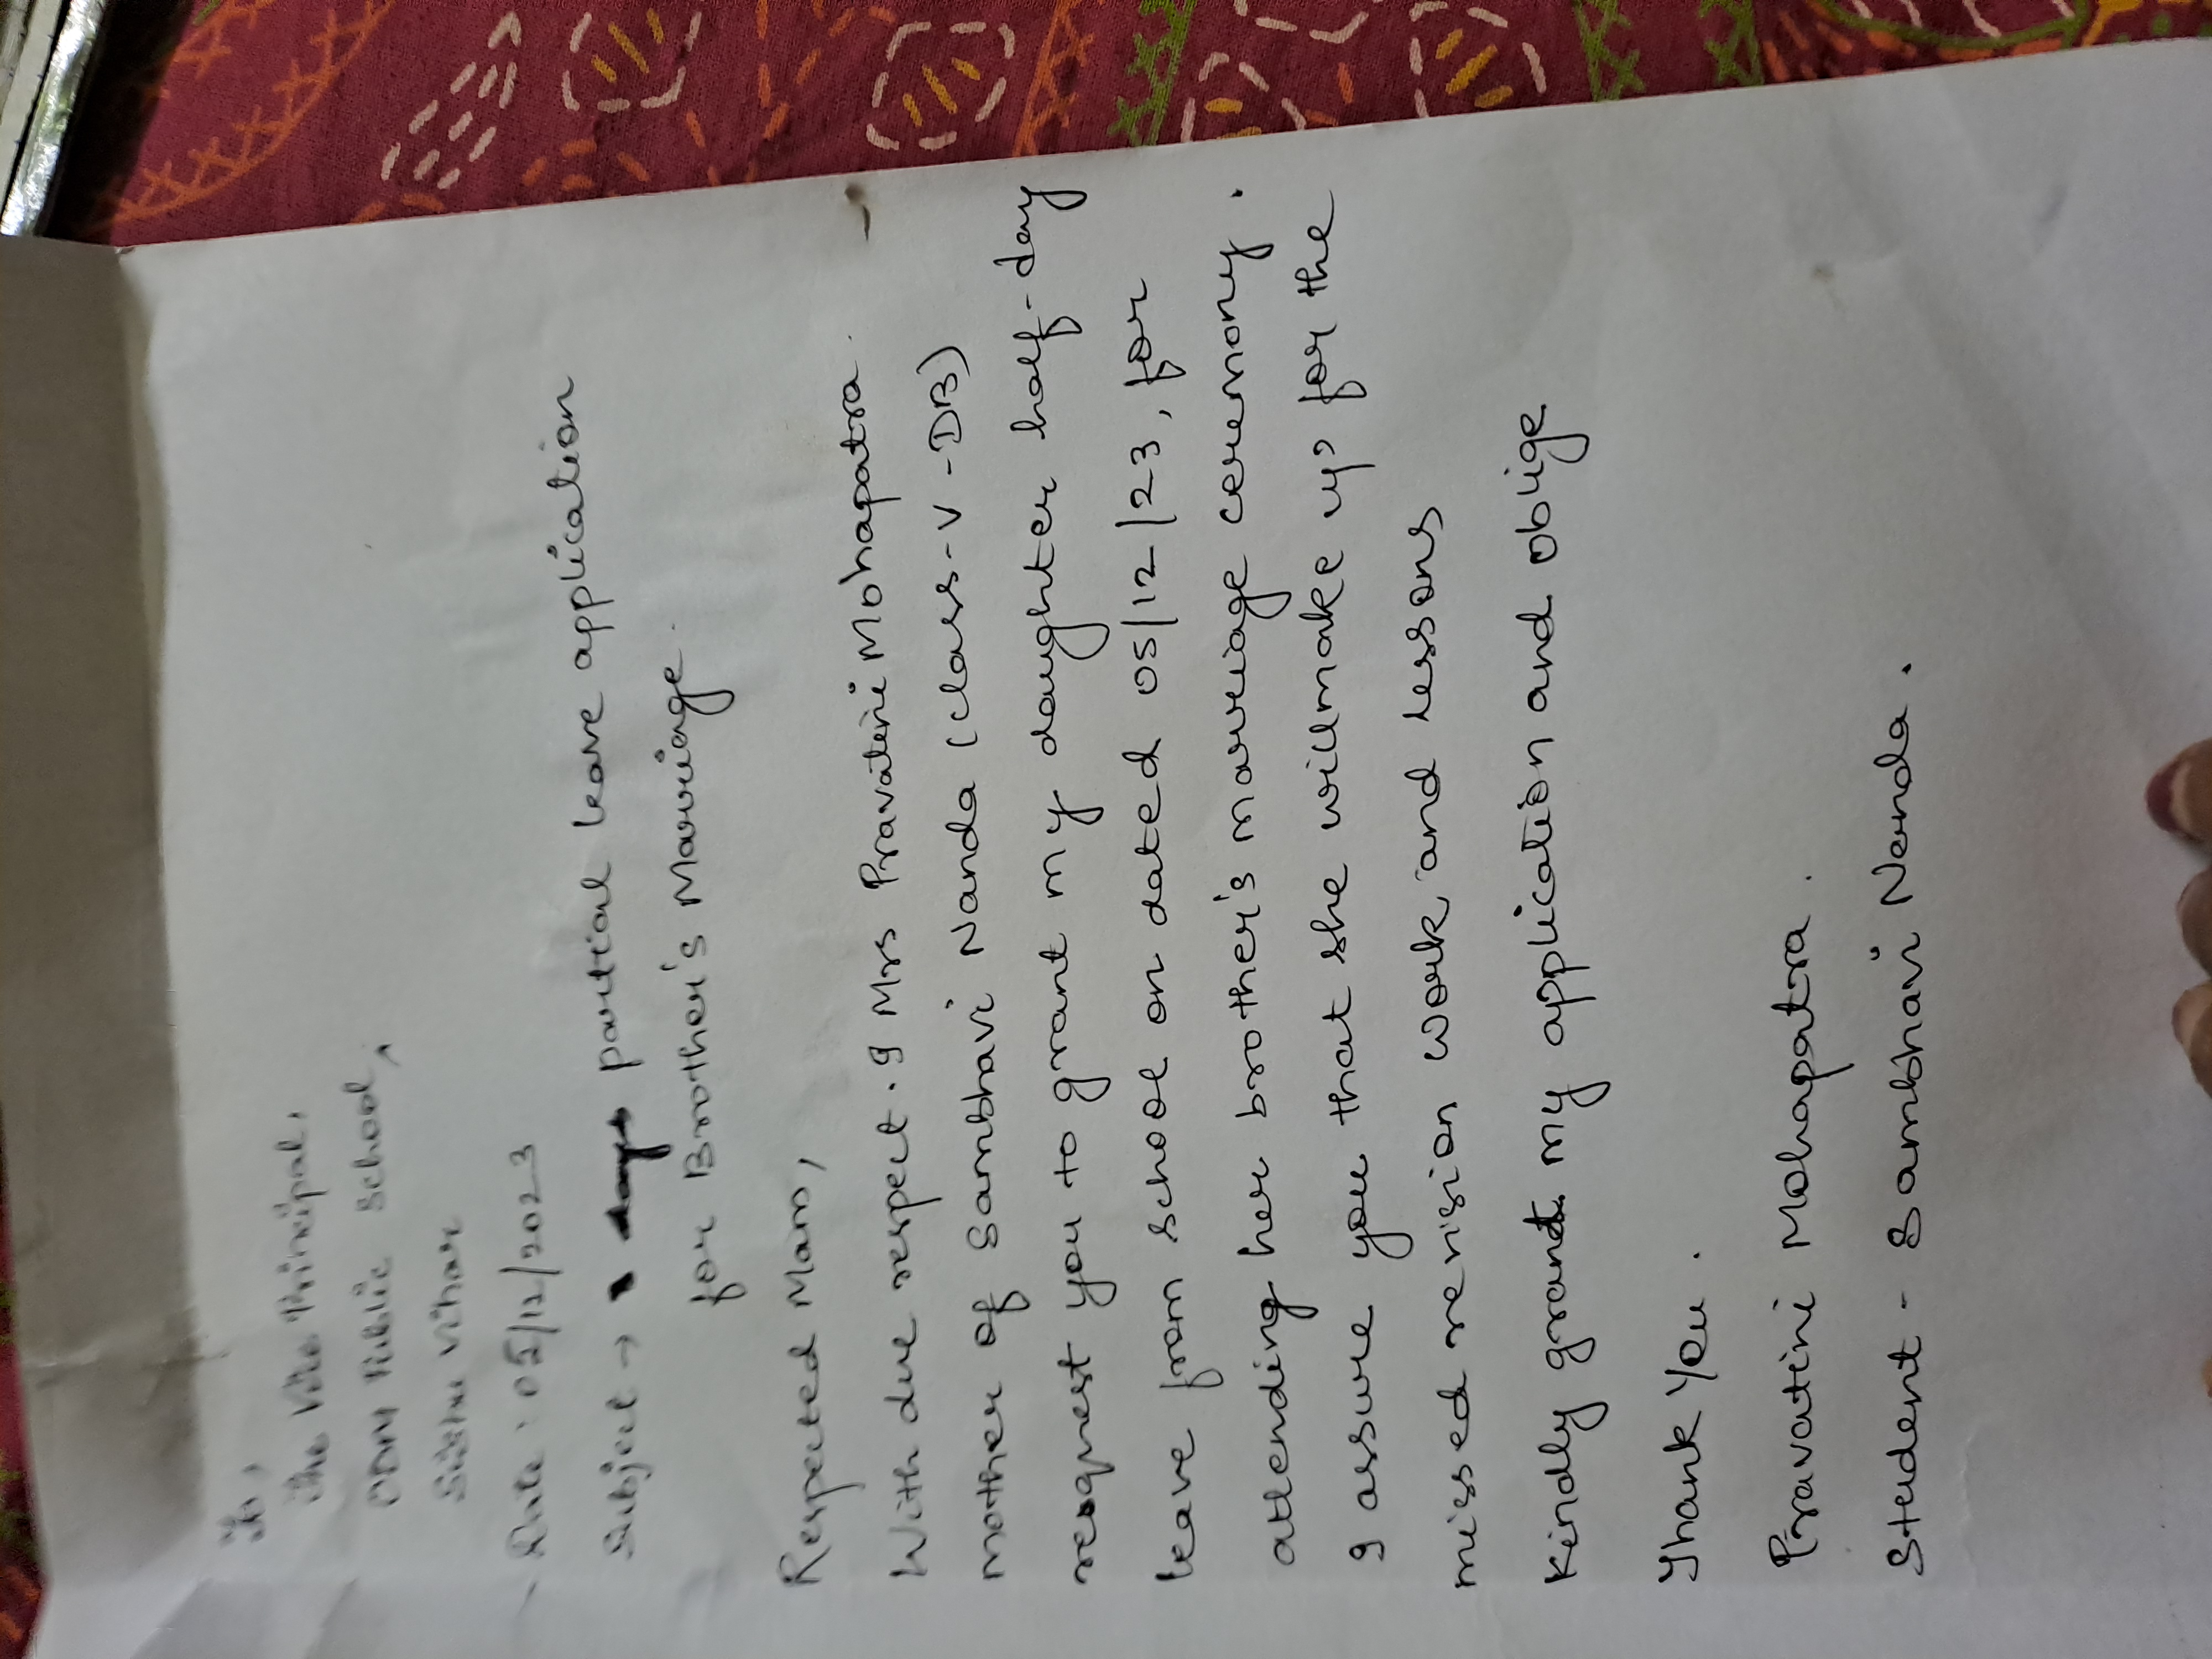 To,
The Vice Principal,
ODM Public School,
Sishu Vihar
Date : 05/12/2023
Subject → partial leave application
for Brother's Marriage.
Respected Mam,
With due respect. I Mrs Pravatini Mohapatra
mother of Sambhavi Nanda (class-V-DB)
request you to grant my daughter half-day
leave from school on dated 05/12/23, for
attending her brother's marriage ceremony.
I assure you that she will make up for the
missed revision work and lessons
Kindly grant my application and oblige
Thank You.
Pravatini Mohapatra.
Student - Sambhavi Nanda.